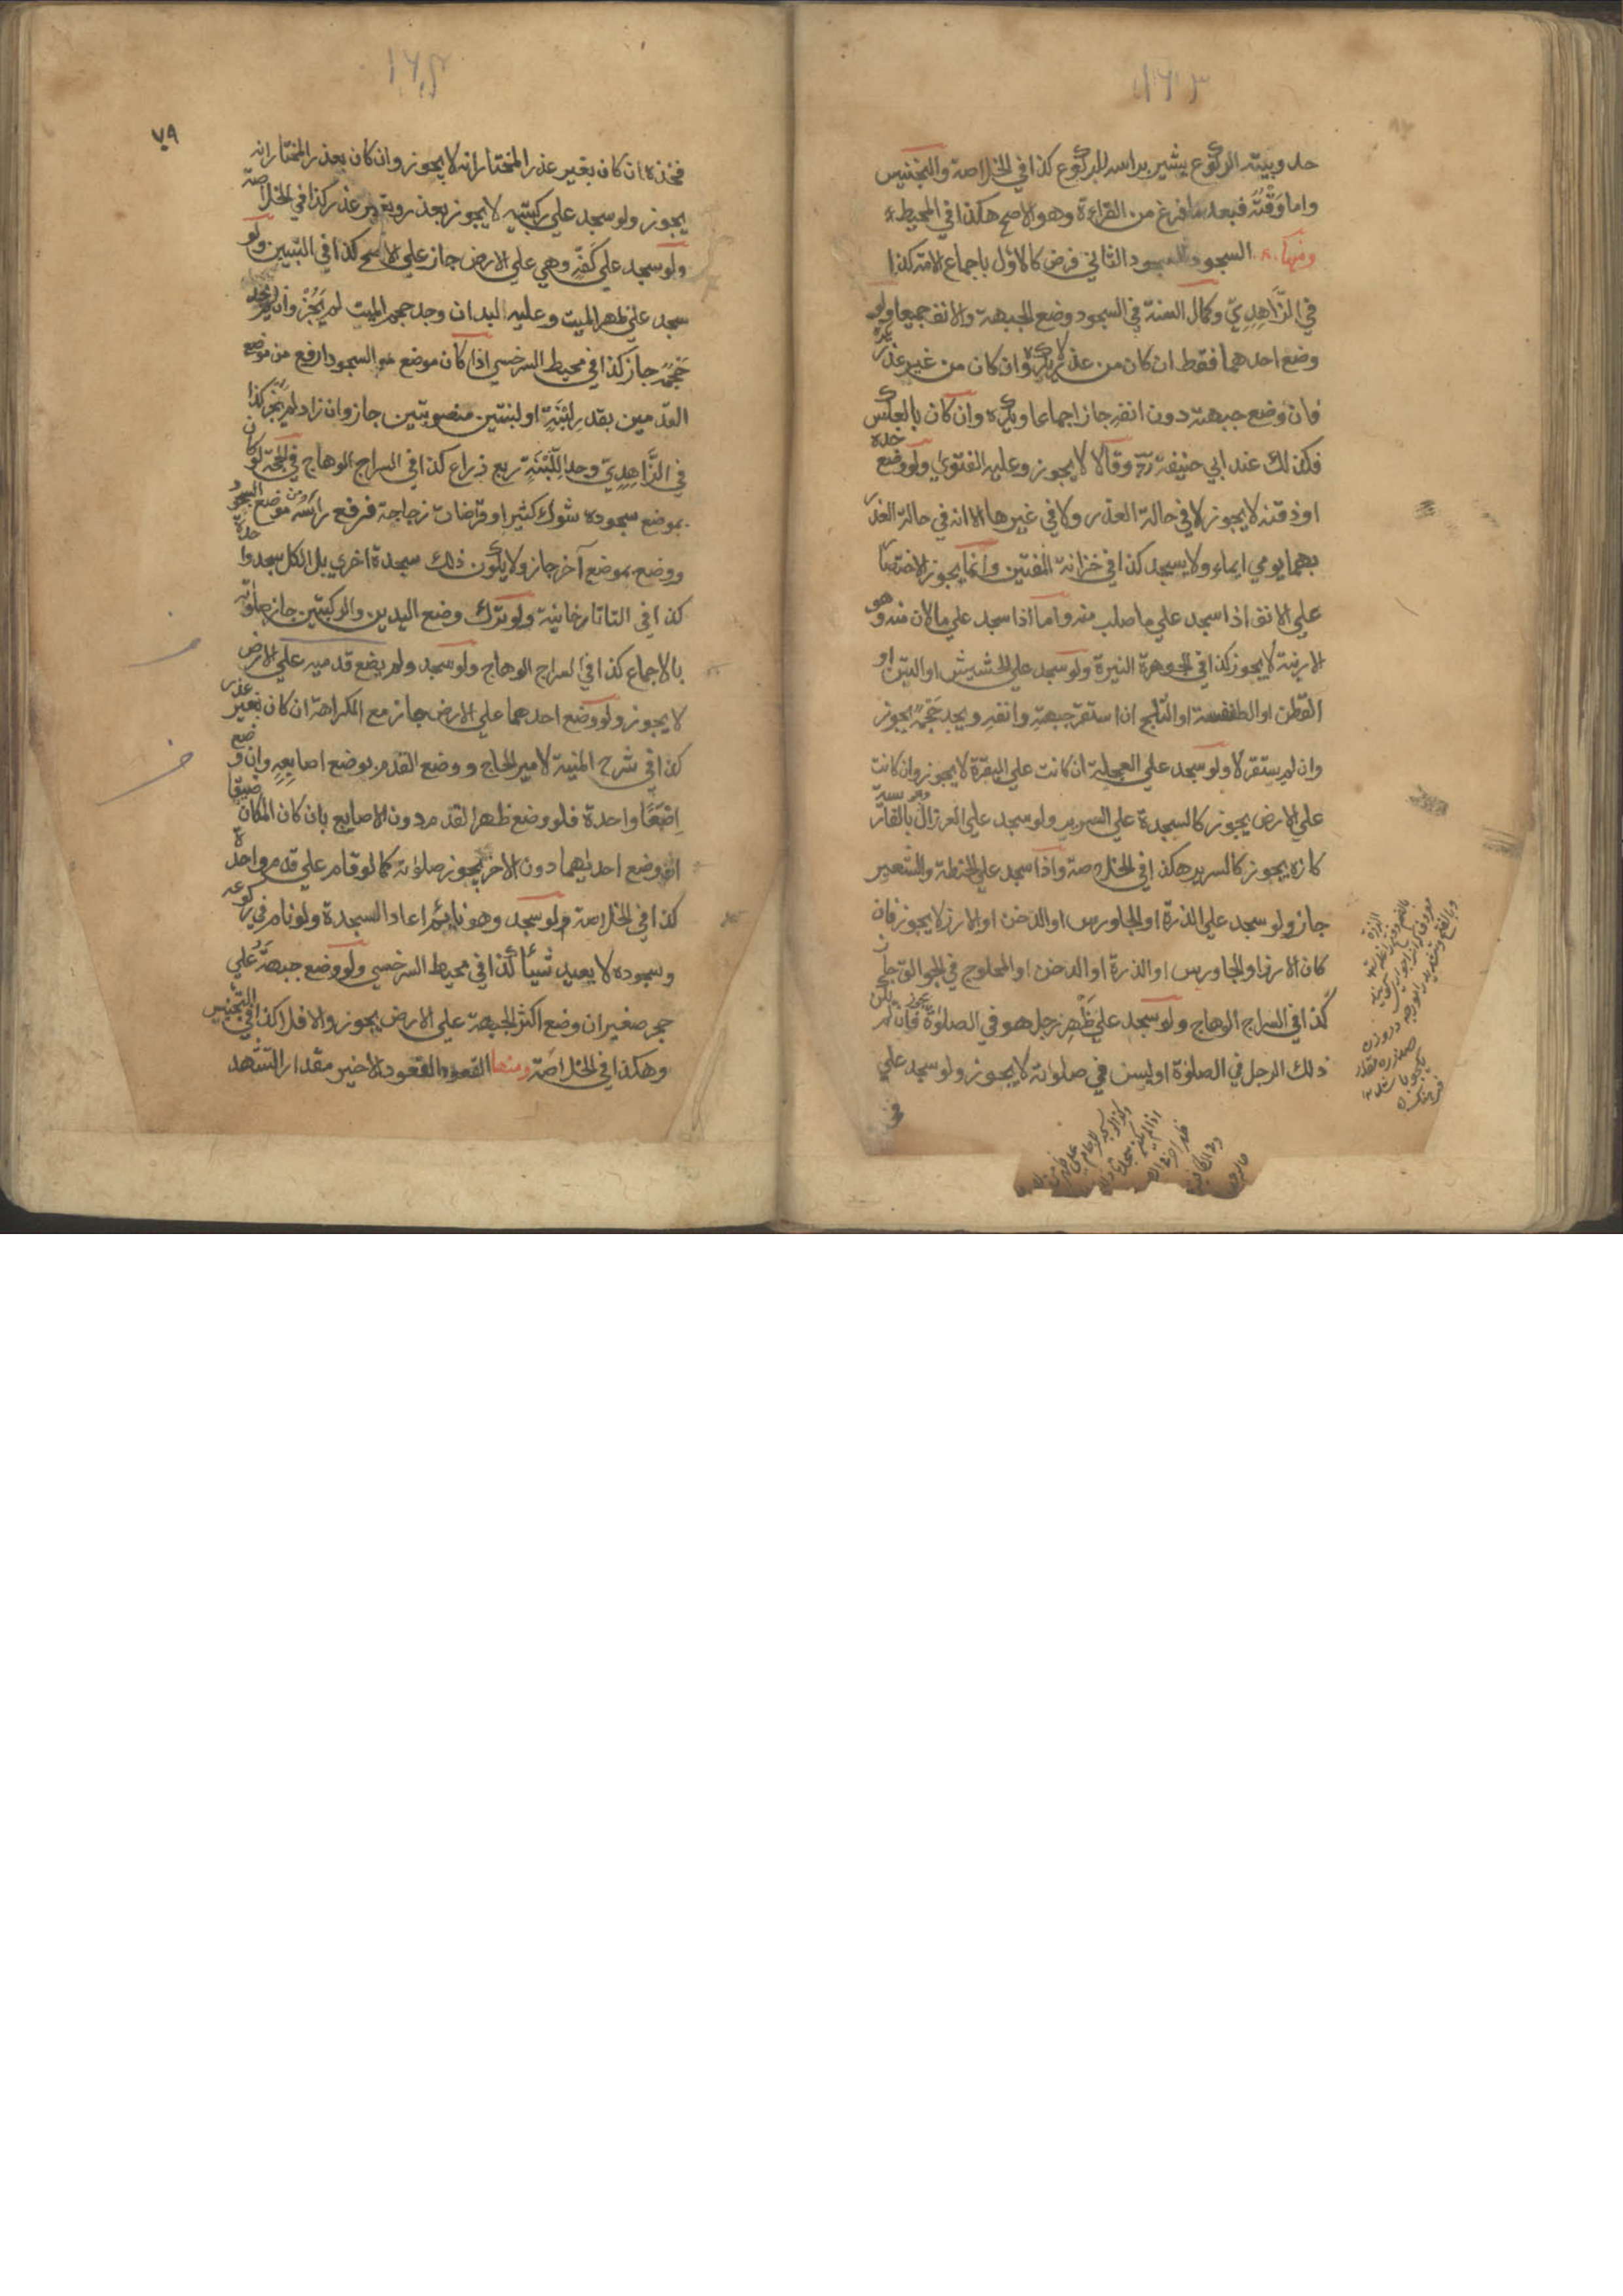 ١٦٣
حدوبيته الركوع يشير براسه للركوع كذا في الخلاصة والتجنيس
واما وَقْتُه فبعد ما فرغ من القراءة وهو الاصح هكذا في المحيط
ومنها السجود السجود الثاني فرض كالاول باجماع الامة كذا
في الزَّاهِدِيّ وكمال السنة في السجود وضع الجبهة والانف جميعا ولو
وضع احدهما فقط ان كان من عذر لا يكره وان كان من غير عذر
فان وضع جبهته دون انفه جاز اجماعا ويكره وان كان بالعكس
فكذلك عند ابي حنيفة رح وقالا لا يجوز وعليه الفتوي ولو وضع خده
او ذقنه لا يجوز لا في حالة العذر ولا في غيرها الا انه في حالة العذر
بهما يومي ايماء ولا يسجد كذا في خزانة المفتين وانما يجوز الاختصار
علي الانف اذا سجد علي ما صلب منه واما اذا سجد علي ما لان منه وهو
الارنبة لا يجوز كذا في الجوهرة النيرة ولو سجد علي الحشيش او التبن او
القطن او الطنفسة او الثلج ان استقر جبهته وانفه ويجد حَجْمَهُ يجوز
وان لم يستقر لا ولو سجد علي العجلة ان كانت علي البقرة لا يجوز وان كانت
علي الارض يجوز كالسجدة علي السرير ولو سجد علي العرزال بالفار
كازه يجوز كالسرير هكذا في الخلاصة واذا سجد علي الحنطة والشعير
جاز ولو سجد علي الذرة او الجاورس او الدخن او الارز لا يجوز فان
كان الارز او الجاورس او الذرة او الدخن او المحلوج في الجوالق جاز
كذا في السراج الوهاج ولو سجد علي ظَهْرِ رجل هو في الصلوة يجوز فان لم يكن
ذلك الرجل في الصلوة او ليس في صلوته لا يجوز ولو سجد علي
١٦٤
٧٩
فخذه ان كان بغير عذر المختار انه لا يجوز وان كان بعذر المختار انه
يجوز ولو سجد علي ركبتيه لا يجوز بعذر وبغير عذر كذا في الخلاصة
ولو سجد علي كَفِّه وهي علي الارض جاز علي الاصح كذا في التبيين ولو
سجد علي ظهر الميت وعليه اللبد ان وجد حجم الميت لم يَجُزْ وان لم يجد
حَجْمَه جاز كذا في محيط السرخسي اذا كان موضع السجود ارفع من موضع
القدمين بقدر لَبِنَةٍ او لبنتين منصوبتين جاز وان زاد لم يجز كذا
في الزَّاهِدِيّ وحد اللَّبِنَةِ ربع ذراع كذا في السراج الوهاج في الحجة لو كان
بموضع سجوده شوك كثير او قراضات زجاجة فرفع رأسه من موضع السجود
ووضع بموضع آخر جاز ولا يكون ذلك سجدة اخري بل الكل سجدة واحدة
كذا في التاتارخانية ولو ترك وضع اليدين والركبتين جاز صلوته
بالاجماع كذا في السراج الوهاج ولو سجد ولم يضع قدميه علي الارض
لا يجوز ولو وضع احدهما علي الارض جاز مع الكراهة ان كان بغير عذر
كذا في شرح المنية لامير الحاج ووضع القدم بوضع اصابعه وان وضع
اِصْبَعًا واحدة فلو وضع ظهر القدم دون الاصابع بان كان المكان ضيقا
او وضع احديهما دون الاخر يجوز صلوته كما لو قام علي قدم واحدة
كذا في الخلاصة ولو سجد وهو نايم اعاد السجدة ولو نام في ركوعه
وسجوده لا يعيد شيئا كذا في محيط السرخسي ولو وضع جبهته علي
حجر صغير ان وضع اكثر الجبهة علي الارض يجوز والا فلا كذا في التجنيس
وهكذا في الخلاصة ومنها القعود القعود الاخير مقدار التشهد